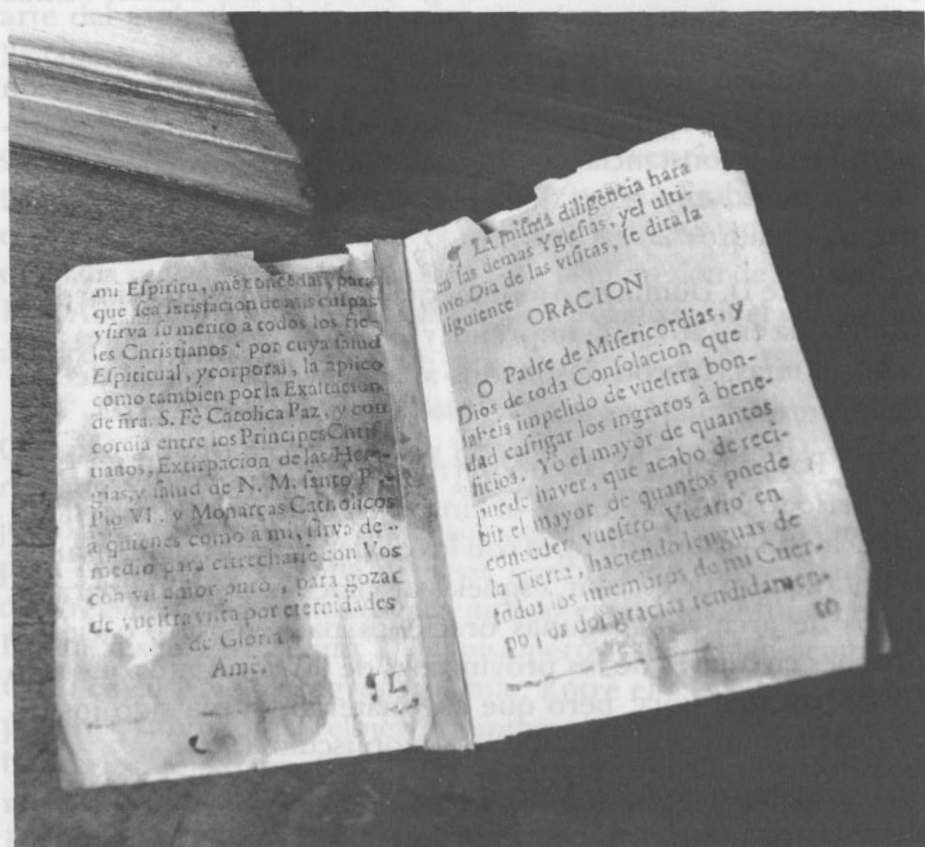 mi Eſpiritu, me concedas, para
que ſea ſatisfacion de mis culpas
y ſirva ſu merito a todos los fie-
les Chriſtianos, por cuya ſalud
Eſpititual, y corporal, la aplico
como tambien por la Exaltacion
de ñra. S. Fè Catolica Paz, y con
cordia entre los Principes Chriſ
tianos, Extirpacion de las Here-
gias, y ſalud de N. M. ſanto P.
Pio VI. y Monarcas Catholicos
a quienes como a mi, ſirva de
medio para eſtrecharſe con Vos
con vn amor puro, para gozar
de vueſtra viſta por eternidades
de Gloria
Ame.
¶ L
¶ La miſma diligencia hara
en las demas Ygleſias, y el ulti-
mo Dia de las viſitas, ſe dira la
ſiguiente
ORACION
O Padre de Miſericordias, y
Dios de toda Conſolacion que
habeis impelido de vueſtra bon-
dad caſtigar los ingratos à bene-
ficios. Yo el mayor de quantos
puede haver, que acabo de reci-
bir el mayor de quantos puede
conceder vueſtro Vicario en
la Tierra, haciendo lenguas de
todos los miembros de mi Cuer-
po, os doi gracias rendidamen-
to